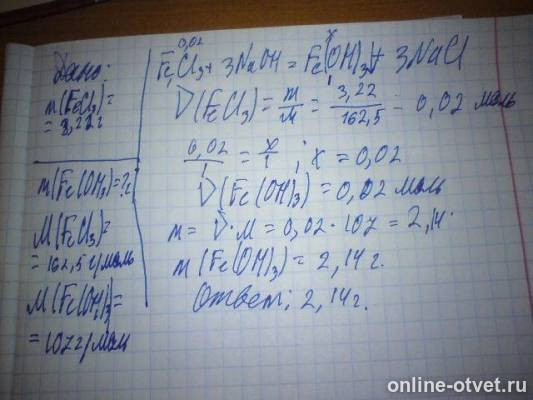 Дано:
m(FeCl₃)=
= 3,22 г
m(Fe(OH)₃)=?
M(FeCl₃)=
= 162,5 г/моль
M(Fe(OH)₃)=
= 107 г/моль
0,02 x
FeCl₃ + 3NaOH = Fe(OH)₃↓ + 3NaCl
1 1
ν(FeCl₃) = m/M = 3,22/162,5 = 0,02 моль
0,02/1 = x/1 ; x = 0,02
ν(Fe(OH)₃) = 0,02 моль
m = ν·M = 0,02·107 = 2,14
m(Fe(OH)₃) = 2,14 г.
Ответ: 2,14 г.
online-otvet.ru